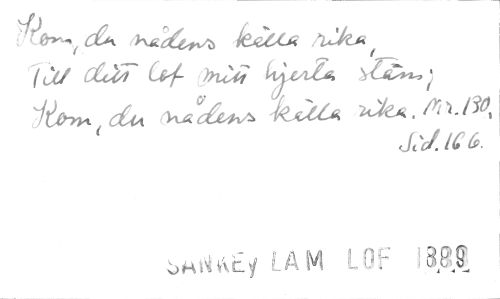 Kom, du nådens källa rika,
Till ditt lof mitt hjerta stäm;
Kom, du nådens källa rika. Nr. 130,
Sid. 166.
SANKEY LAM LOF 1889